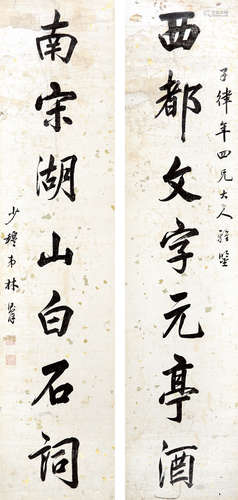 西都文字元亭酒
子律年四兄大人雅鑒
南宋湖山白石詞
少穆弟林